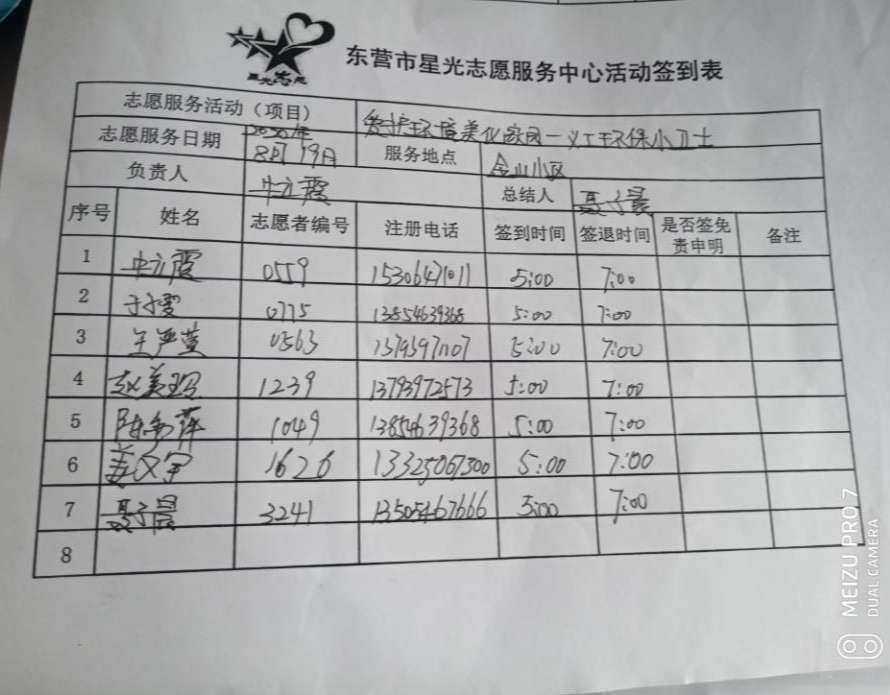 星光志愿
东营市星光志愿服务中心活动签到表
志愿服务活动（项目） 环境美化家园一义工环保小卫士
志愿服务日期 2020年8月19日 服务地点 金山小区
负责人 牛立霞 总结人 聂子晨
序号 姓名 志愿者编号 注册电话 签到时间 签退时间 是否签免责申明 备注
1 牛立霞 0559 15306471011 5:00 7:00
2 0775 13854639368 5:00 7:00
3 王严萱 0563 13793971107 5:00 7:00
4 赵美玲 1239 13793972573 5:00 7:00
5 陈 萍 1049 13854639368 5:00 7:00
6 姜文宇 1626 13325067300 5:00 7:00
7 聂子晨 3241 13505467666 5:00 7:00
8
MEIZU PRO 7
DUAL CAMERA